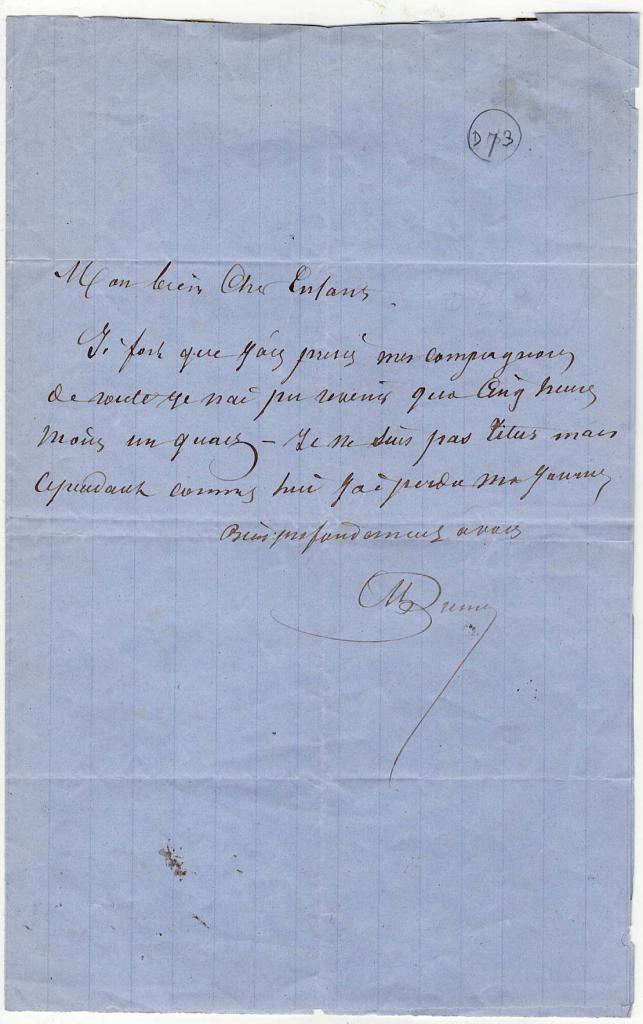 D 73
Mon bien Cher Enfant
Si fort que j'aie pressé mes compagnons
de route je n'ai pu revenir qu'a Cinq heures
moins un quart – Je ne suis pas Titus mais
Cependant comme lui j'ai perdu ma journée
Bien profondement a vous